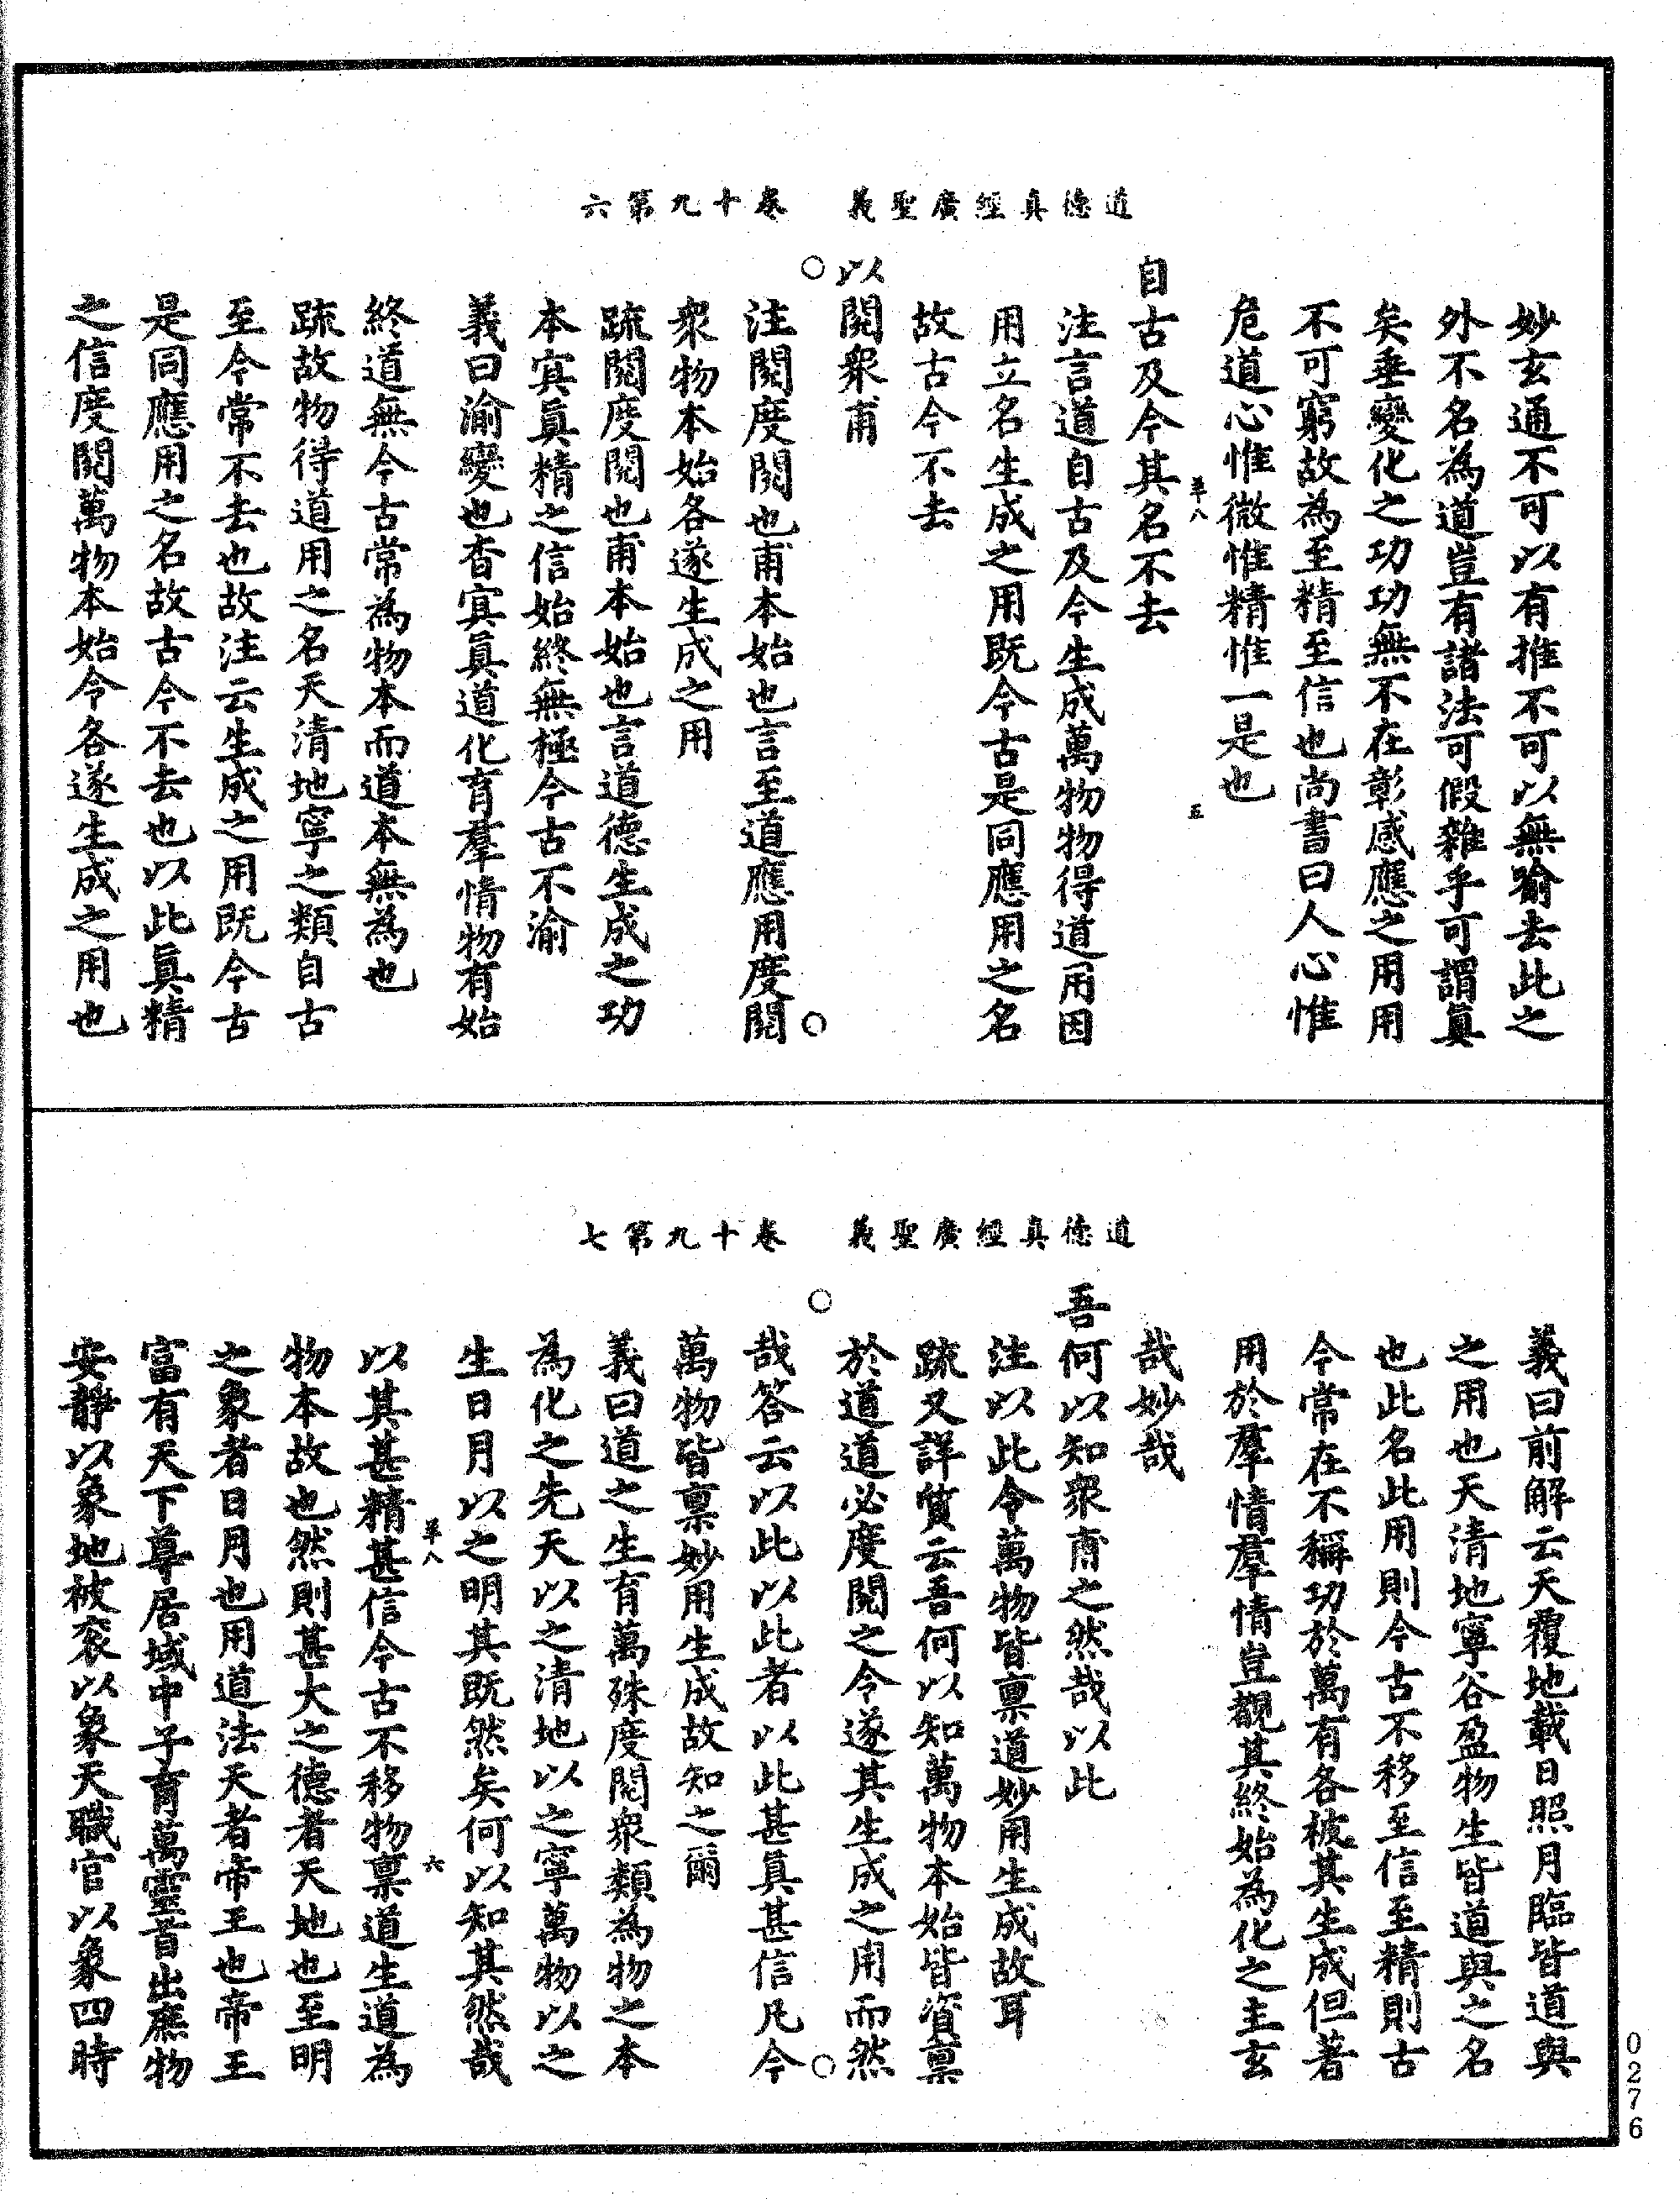 道德真經廣聖義　卷十九第六
妙玄通不可以有推不可以無喻去此之
外不名為道豈有諸法可假雜乎可謂真
矣垂變化之功功無不在彰感應之用用
不可窮故為至精至信也尚書曰人心惟
危道心惟微惟精惟一是也
羊八　五
自古及今其名不去
注言道自古及今生成萬物物得道用因
用立名生成之用既今古是同應用之名
故古今不去
以閱衆甫
注閱度閱也甫本始也言至道應用度閱
衆物本始各遂生成之用
疏閱度閱也甫本始也言道德生成之功
本寘真精之信始終無極今古不渝
義曰渝變也杳寘真道化育羣情物有始
終道無今古常為物本而道本無為也
疏故物得道用之名天清地寧之類自古
至今常不去也故注云生成之用既今古
是同應用之名故古今不去也以此真精
之信度閱萬物本始令各遂生成之用也
道德真經廣聖義　卷十九第七
義曰前解云天覆地載日照月臨皆道與
之用也天清地寧谷盈物生皆道與之名
也此名此用則今古不移至信至精則古
今常在不稱功於萬有各被其生成但著
用於羣情羣情豈觀其終始為化之主玄
哉妙哉
吾何以知衆甫之然哉以此
注以此令萬物皆稟道妙用生成故耳
疏又詳質云吾何以知萬物本始皆資稟
於道道必度閱之令遂其生成之用而然
哉答云以此以此者以此甚真甚信凡今
萬物皆稟妙用生成故知之爾
義曰道之生育萬殊度閱衆類為物之本
為化之先天以之清地以之寧萬物以之
生日月以之明其既然矣何以知其然哉
羊八　六
以其甚精甚信今古不移物稟道生道為
物本故也然則甚大之德者天地也至明
之象者日月也用道法天者帝王也帝王
富有天下尊居域中子育萬靈首出庶物
安靜以象地被衮以象天職官以象四時
0276